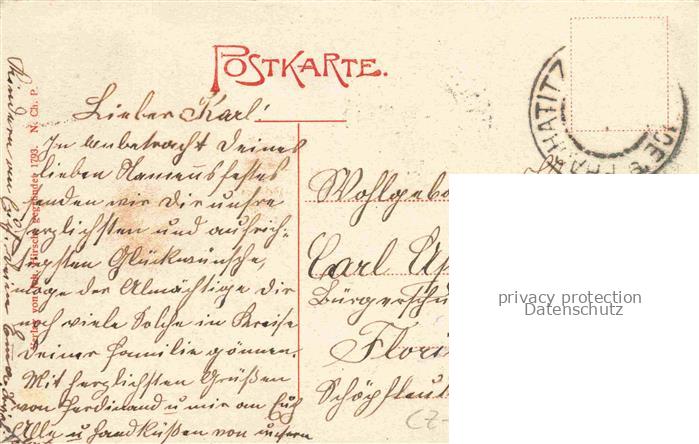 POSTKARTE.
Lieber Karl!
In Anbetracht Deines
lieben Namensfestes
senden wir Dir unsre
herzlichsten und aufrich-
tigsten Glückwünsche,
möge der Allmächtige Dir
noch viele Solche im Kreise
Deiner Familie gönnen.
Mit herzlichsten Grüßen
von Ferdinand u mir an Euch
Alle u Handküssen von unsern
Kindern
Verlag von Jak. Hirsch, gegründet 1793. N. Ch. P.
PRACHATITZ
Wohlgebo
Carl
Bürgerschu
Flori
privacy protection
Datenschutz
CZ-